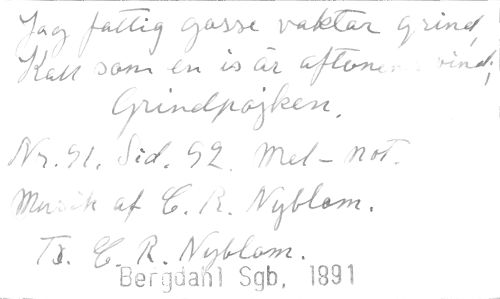 Jag fattig gosse vaktar grind,
Kall som en is är aftonens vind;
Grindpojken.
Nr. 51. Sid. 52. Mel-not.
Musik af C. R. Nyblom.
Tx. C. R. Nyblom.
Bergdahl Sgb, 1891